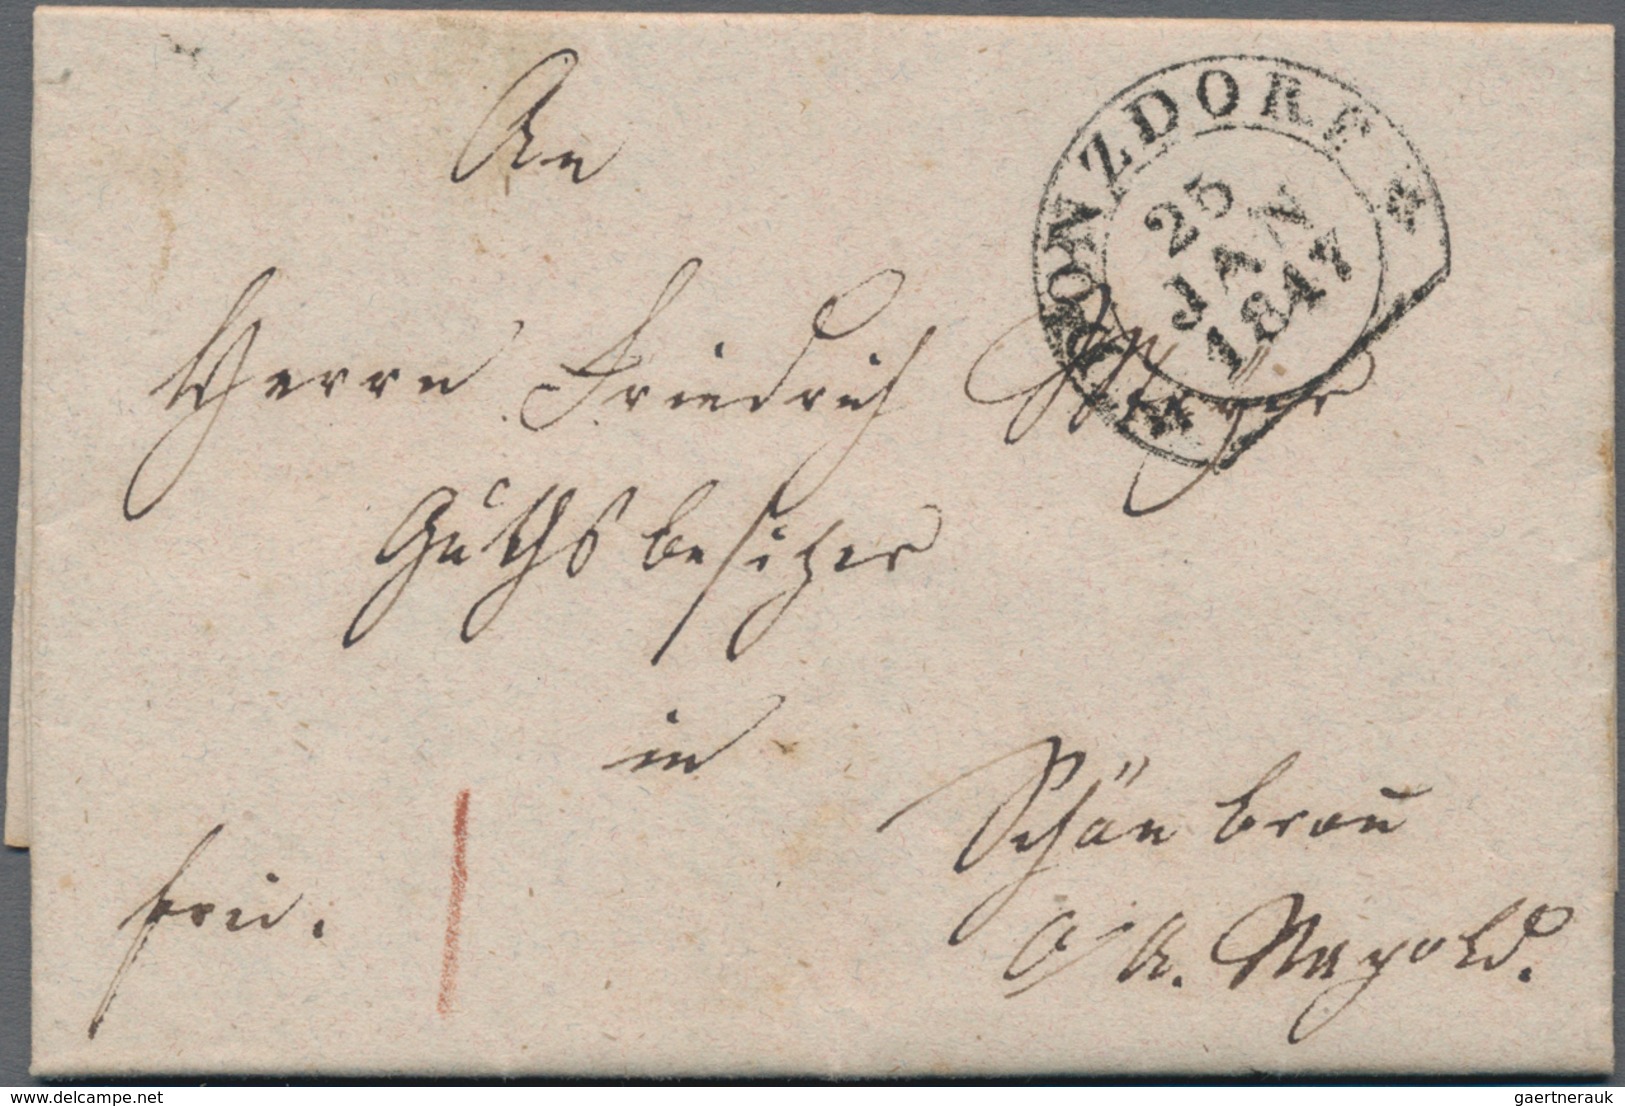 An
DONZDORF
25
JAN
1847
Herrn Friedrich
Guthsbesitzer
in
Schönbronn
O/A. Nagold.
frei.
www.delcampe.net
gaertnerauk